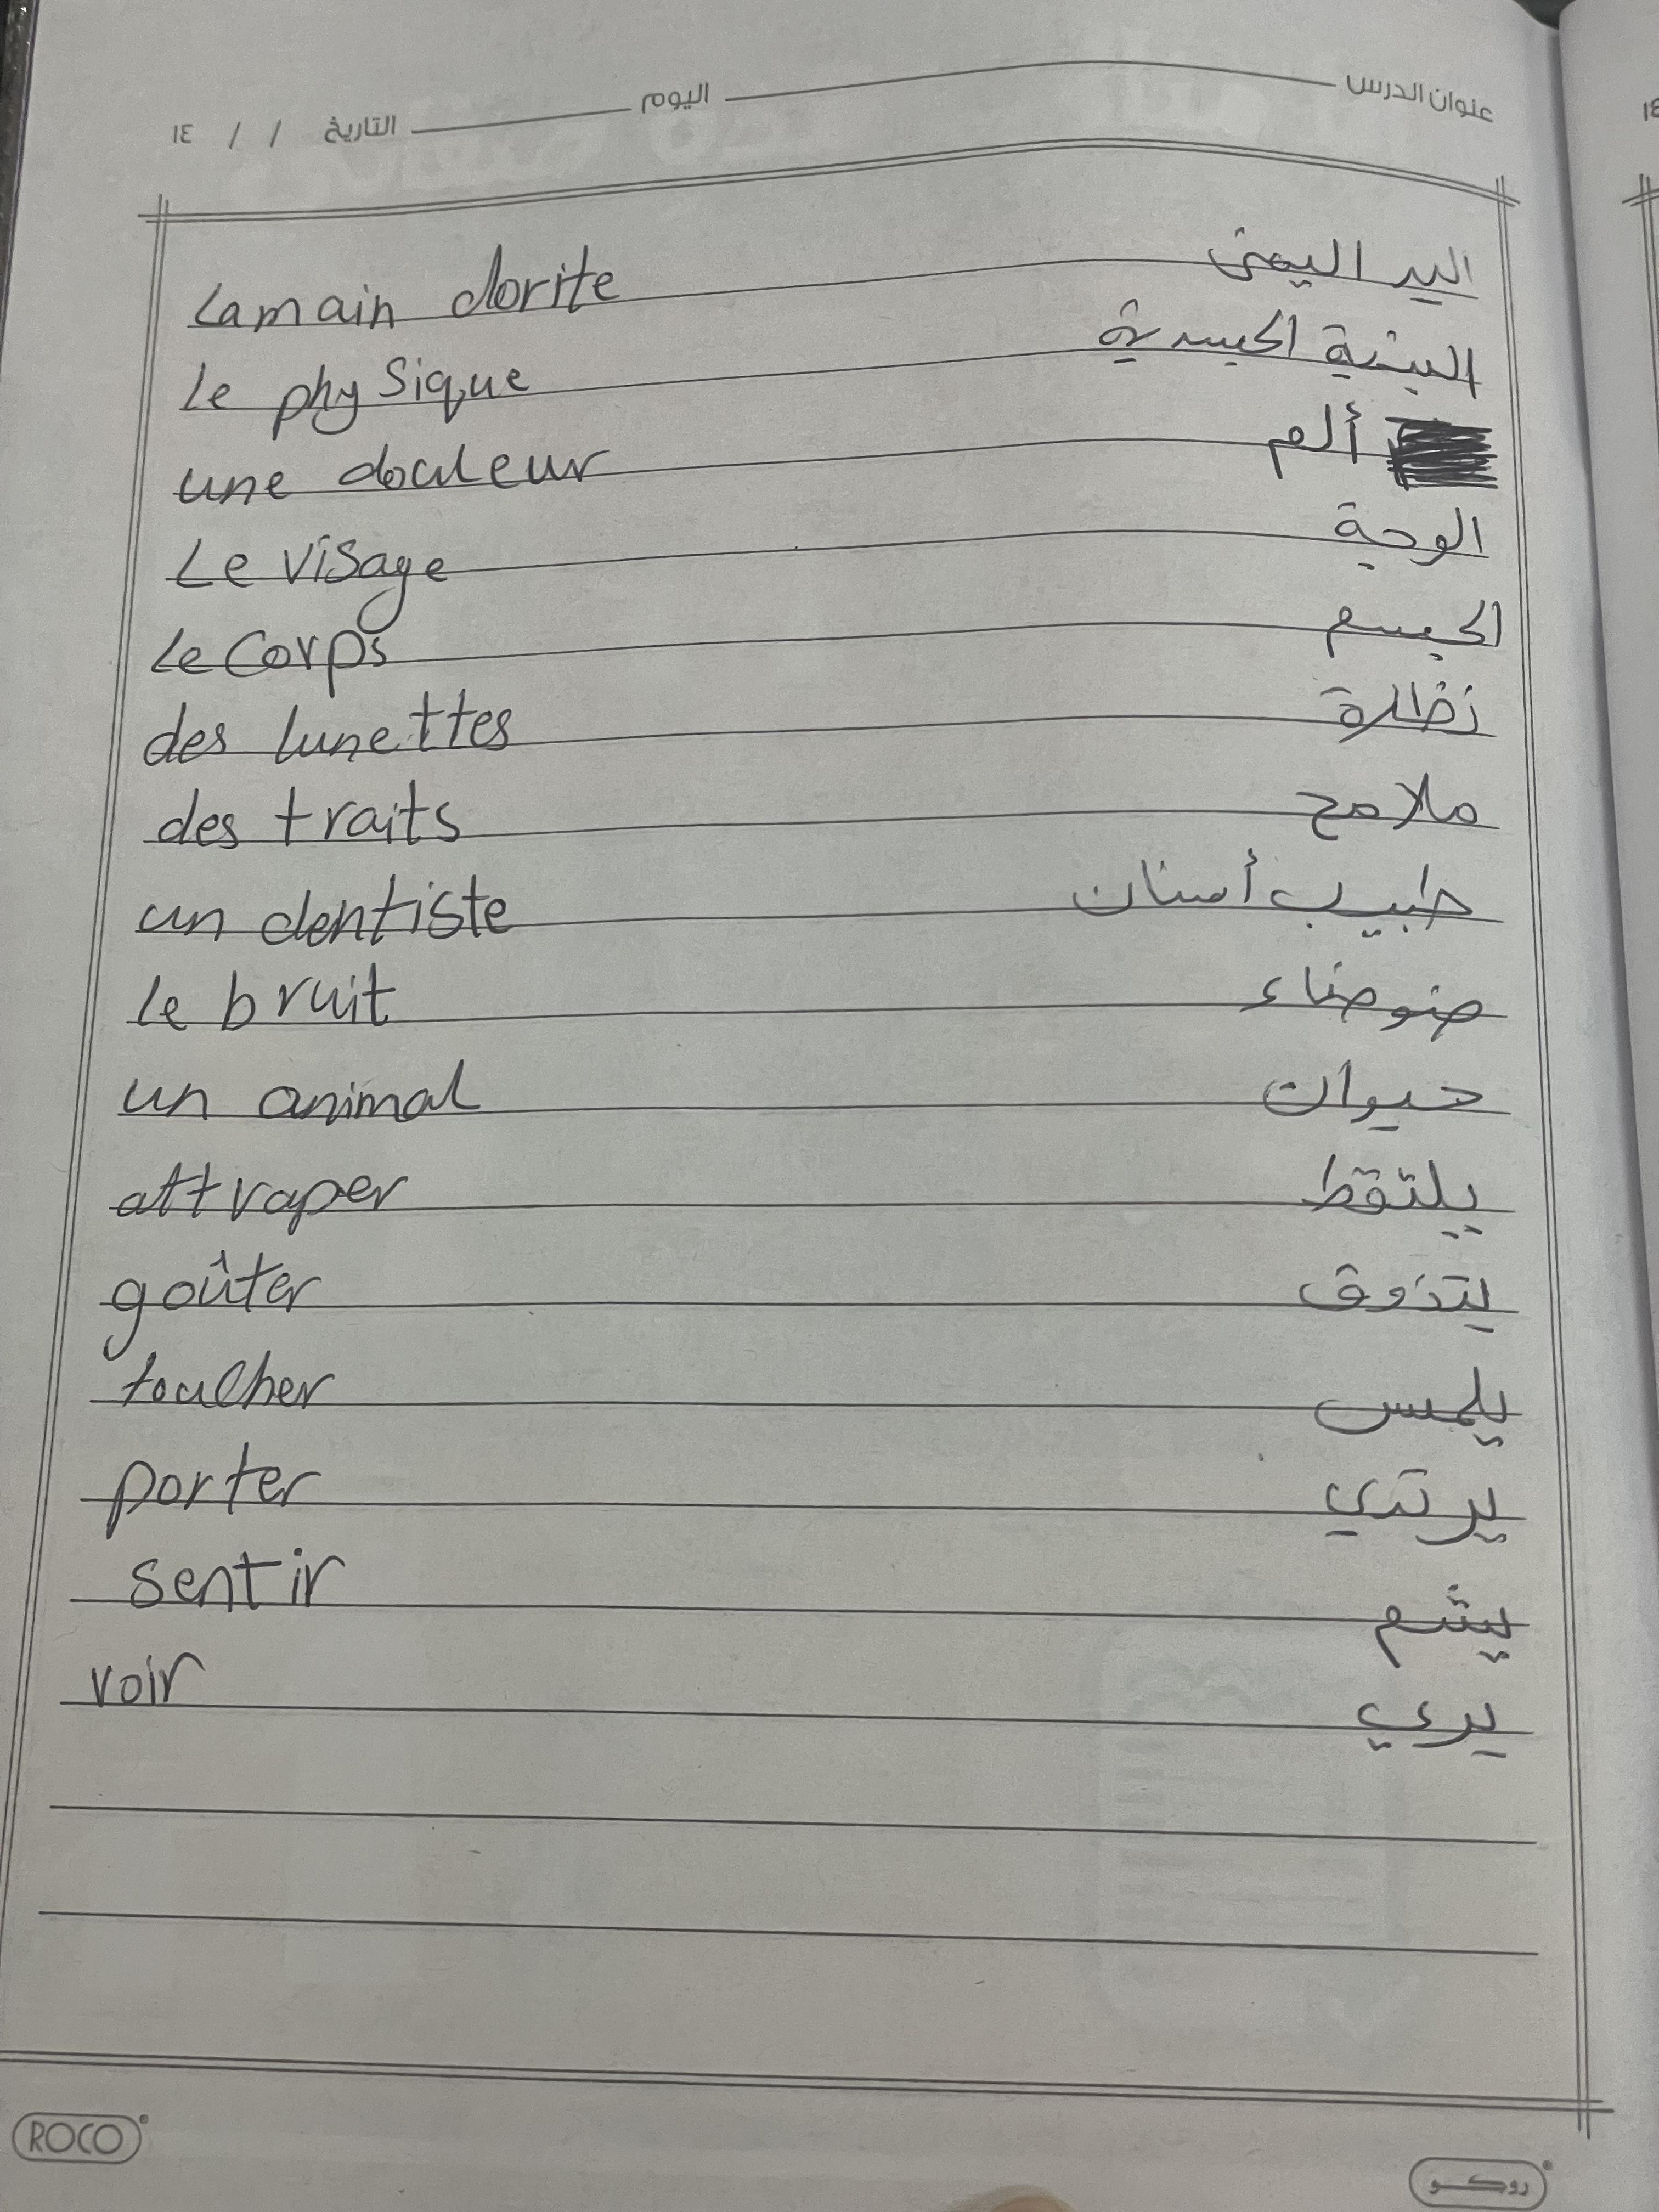 عنوان الدرس اليوم التاريخ / / ١٤
La main dorite اليد اليمنى
Le physique البنية الجسدية
une douleur ألم
Le visage الوجة
Le corps الجسم
des lunettes نظارة
des traits ملامح
un dentiste طبيب أسنان
le bruit ضوضاء
un animal حيوان
attraper يلتقط
goûter يتذوق
toucher يلمس
porter يرتدي
sentir يشم
voir يري
ROCO روكو